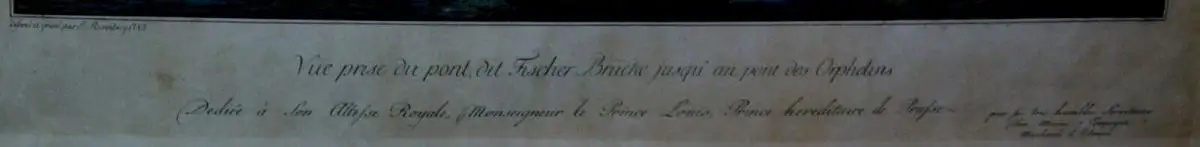 dessiné et gravé par J. Rosenberg 1785
Vue prise du pont, dit Fischer Brucke jusqu'au pont des Orphelins
Dediée à Son Altesse Royale, Monseigneur le Prince Louis, Prince hereditaire de Prusse
par ses très humbles Serviteurs
Morino & Compagnie
Marchands d'Estampes